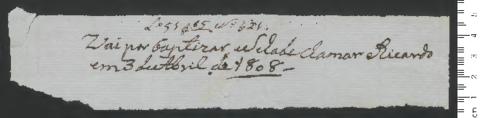 Lo 51 f 85. Nº 621.
Vai por baptizar, e se hade chamar Ricardo
em 3 de Abril de 1808